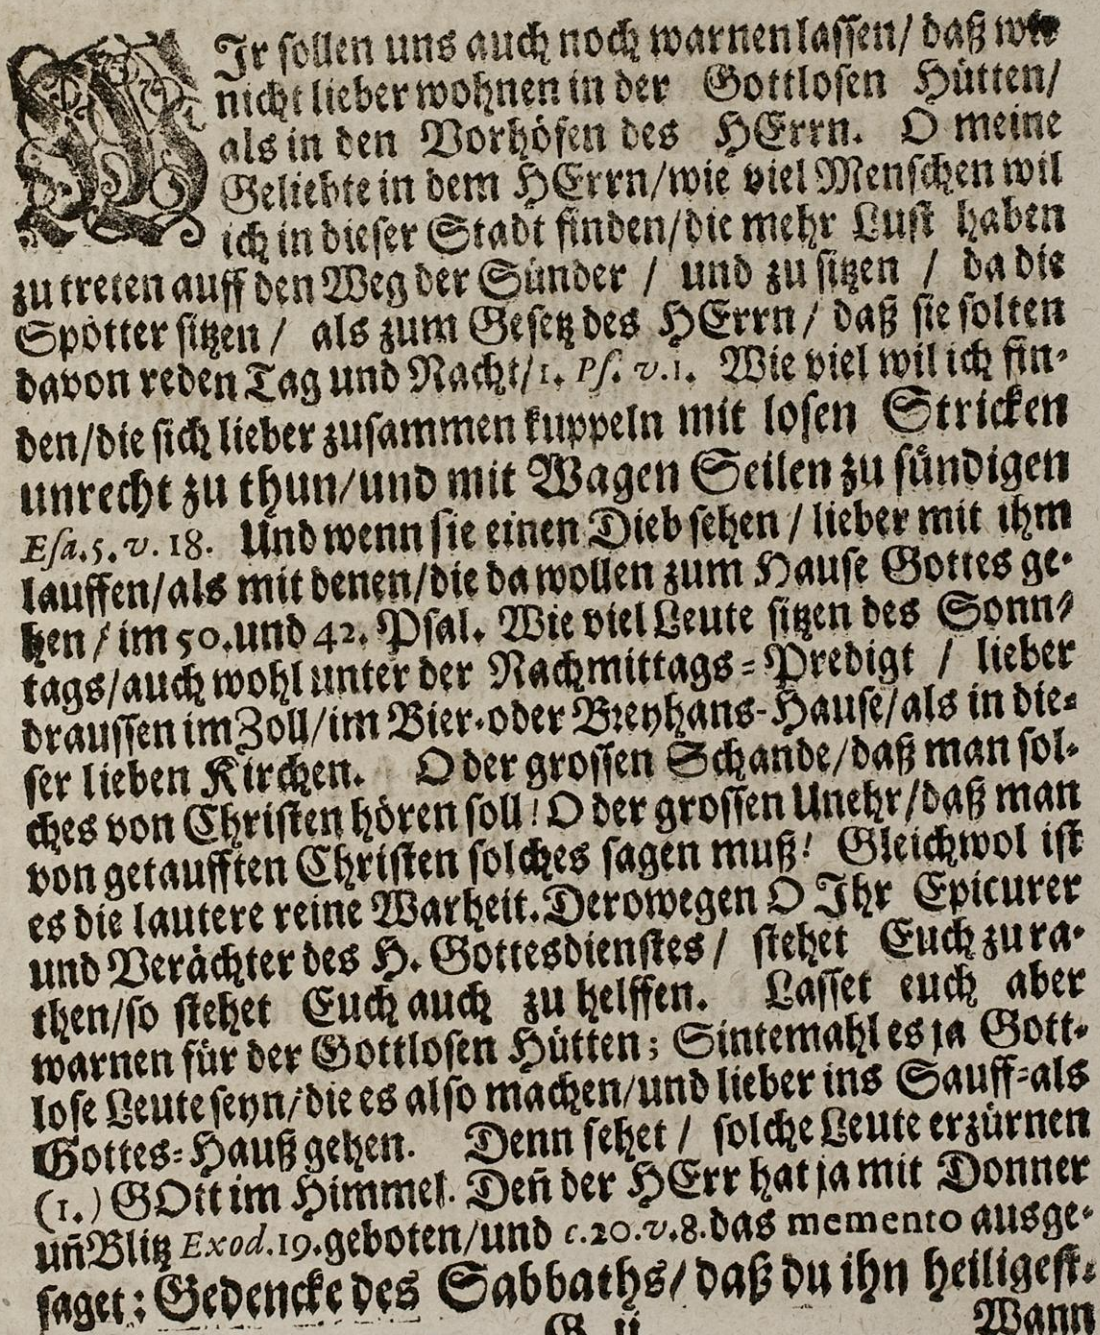 WIr sollen uns auch noch warnen lassen/ daß wir
nicht lieber wohnen in der Gottlosen Hütten/
als in den Vorhöfen des HErrn. O meine
Geliebte in dem HErrn/wie viel Menschen wil
ich in dieser Stadt finden/die mehr Lust haben
zu treten auff den Weg der Sünder / und zu sitzen / da die
Spötter sitzen / als zum Gesetz des HErrn/ daß sie solten
davon reden Tag und Nacht/1. Ps. v.1. Wie viel wil ich fin-
den/die sich lieber zusammen kuppeln mit losen Stricken
unrecht zu thun/und mit Wagen Seilen zu sündigen
Esa.5.v.18. Und wenn sie einen Dieb sehen / lieber mit ihm
lauffen/als mit denen/die da wollen zum Hause Gottes ge-
hen / im 50.und 42. Psal. Wie viel Leute sitzen des Sonn-
tags/auch wohl unter der Nachmittags-Predigt / lieber
draussen im Zoll/im Bier-oder Breyhans-Hause/als in die-
ser lieben Kirchen. O der grossen Schande/daß man sol-
ches von Christen hören soll! O der grossen Unehr/daß man
von getaufften Christen solches sagen muß! Gleichwol ist
es die lautere reine Warheit. Derowegen O Ihr Epicurer
und Verächter des H. Gottesdienstes/ stehet Euch zu ra-
then/so stehet Euch auch zu helffen. Lasset euch aber
warnen für der Gottlosen Hütten; Sintemahl es ja Gott-
lose Leute seyn/die es also machen/und lieber ins Sauff-als
Gottes-Hauß gehen. Denn sehet / solche Leute erzürnen
(1.) GOtt im Himmel. Deñ der HErr hat ja mit Donner
uñ Blitz Exod.19.geboten/und c.20.v.8.das memento ausge-
saget: Gedencke des Sabbaths/daß du ihn heiligest.
G ij Wann